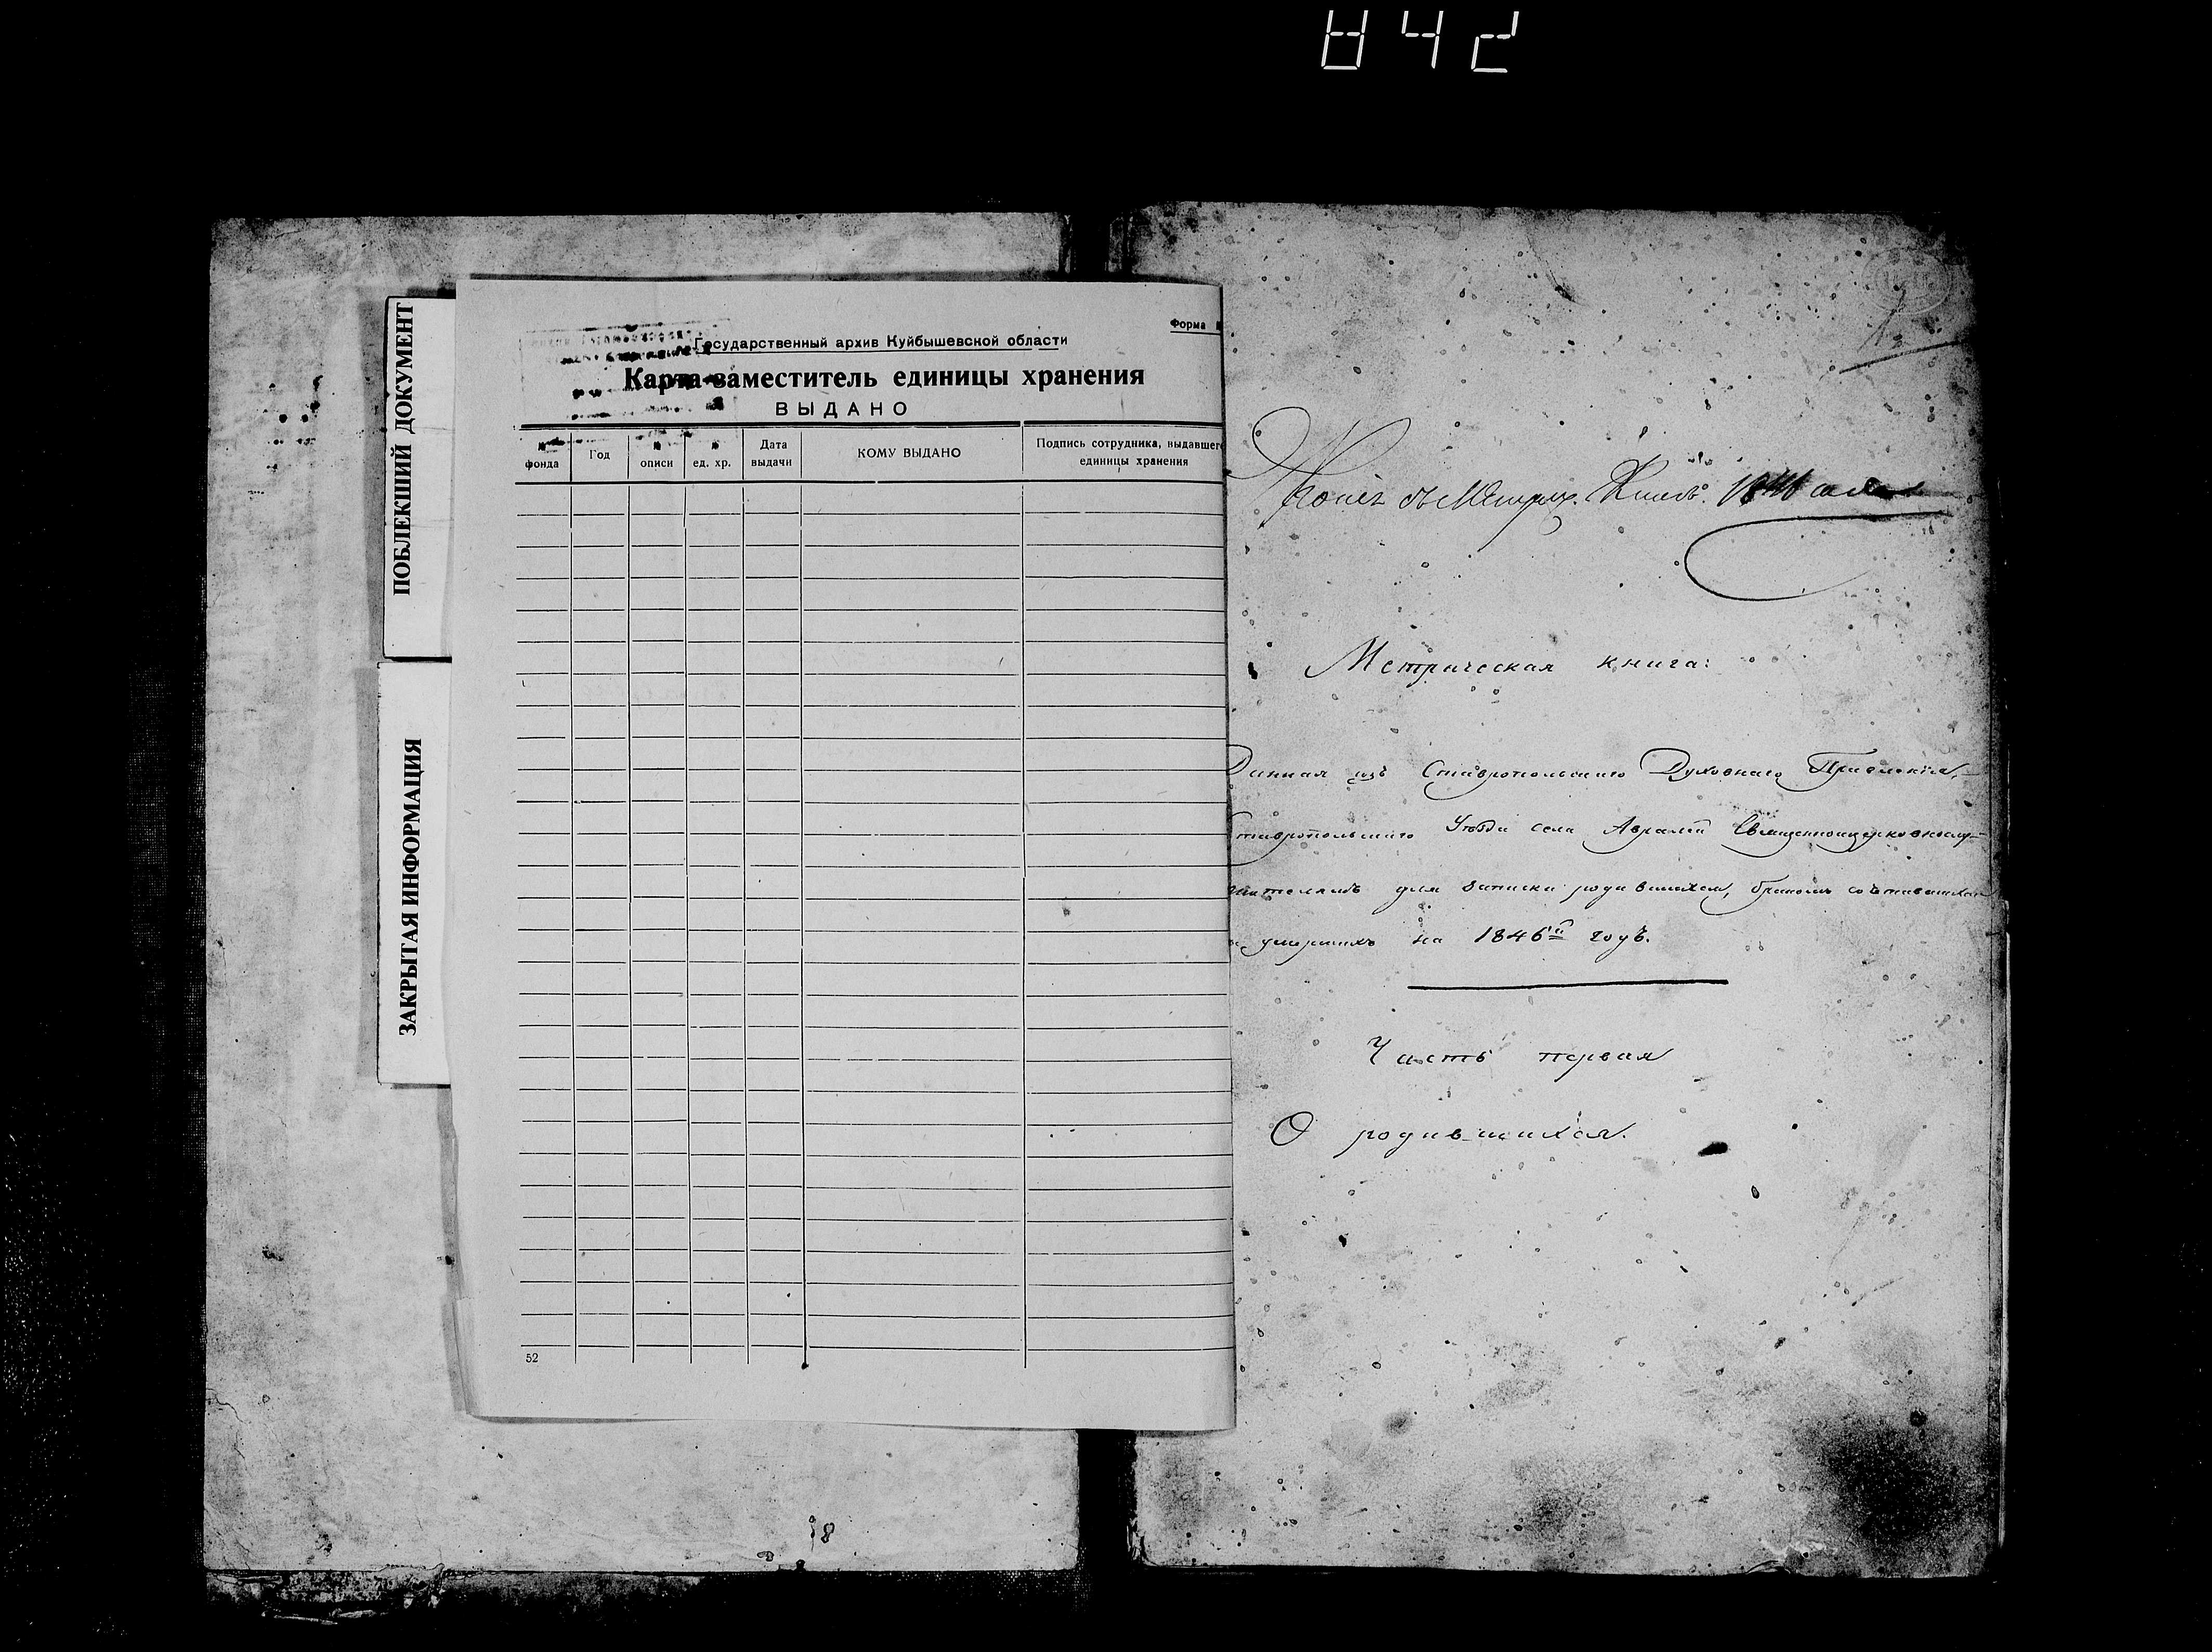 842
ПОБЛЕКШИЙ ДОКУМЕНТ
ЗАКРЫТАЯ ИНФОРМАЦИЯ
Форма
Государственный архив Куйбышевской области
Карта-заместитель единицы хранения
ВЫДАНО
№ фонда
Год
№ описи
№ ед. хр.
Дата выдачи
КОМУ ВЫДАНО
Подпись сотрудника, выдавшего единицы хранения
52
18
Метрическая книга:
Данная изъ Ставропольскаго Духовнаго Правленія,
Ставропольскаго Уѣзда села Авралей Священноцерковнослу-
жителямъ для записки родившихся, бракомъ сочетавшихся
и умершихъ на 1846й годъ.
Часть первая
О родившихся.